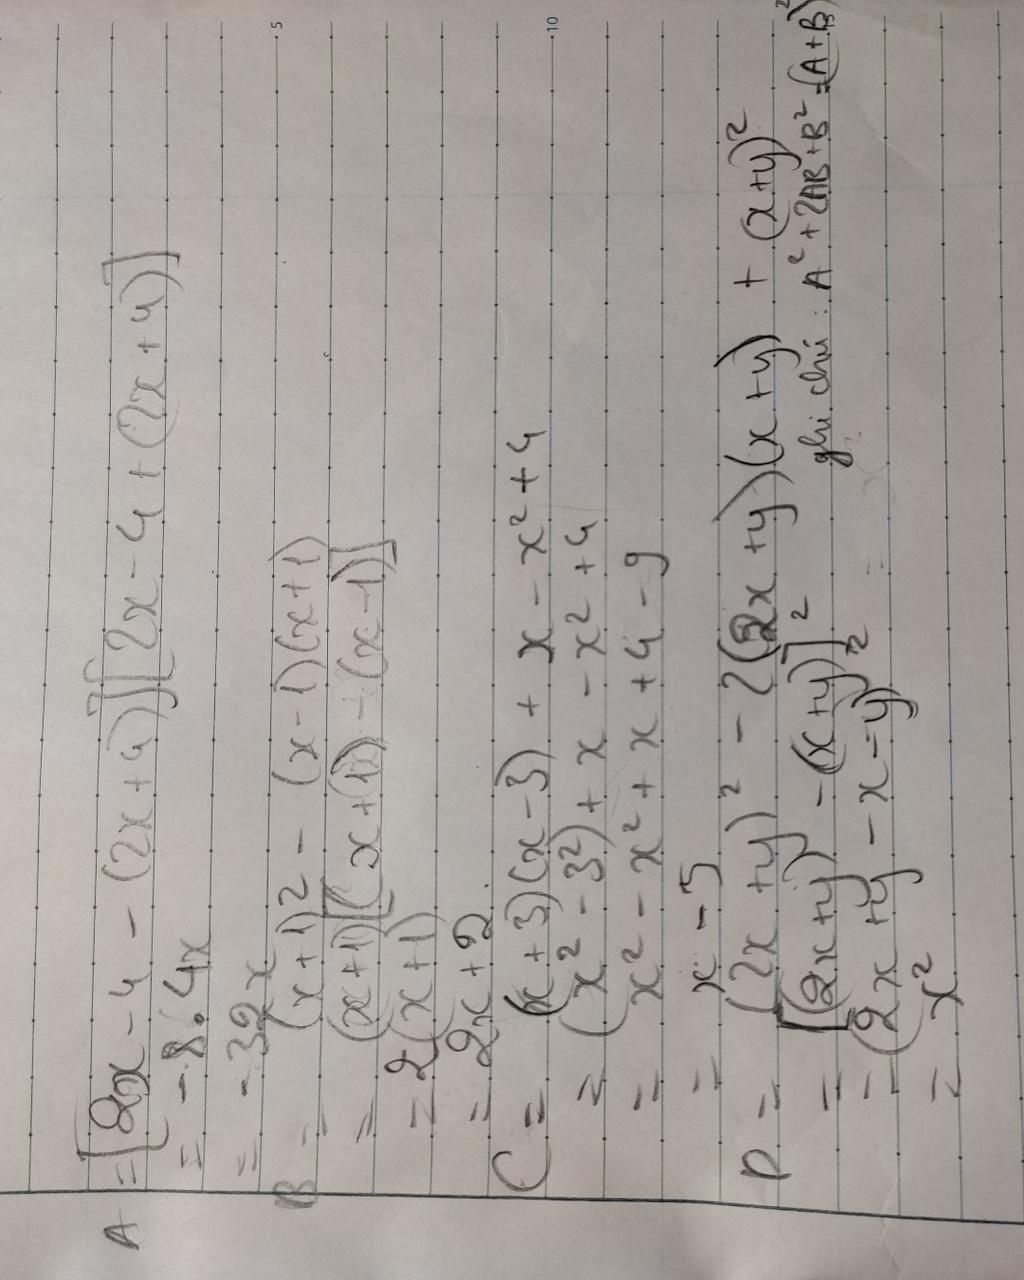 A = [2x - 4 - (2x + 4)][2x - 4 + (2x + 4)]
= - 8 . 4x
= - 32x
B = (x + 1)² - (x - 1)(x + 1)
= (x + 1)[(x + 1) - (x - 1)]
= 2(x + 1)
= 2x + 2
C = (x + 3)(x - 3) + x - x² + 4
= (x² - 3²) + x - x² + 4
= x² - x² + x + 4 - 9
= x - 5
D = (2x + y)² - 2(2x + y)(x + y) + (x + y)²
= [(2x + y) - (x + y)]²
ghi chú : A² + 2AB + B² = (A + B)²
= (2x + y - x - y)²
= x²
5
10